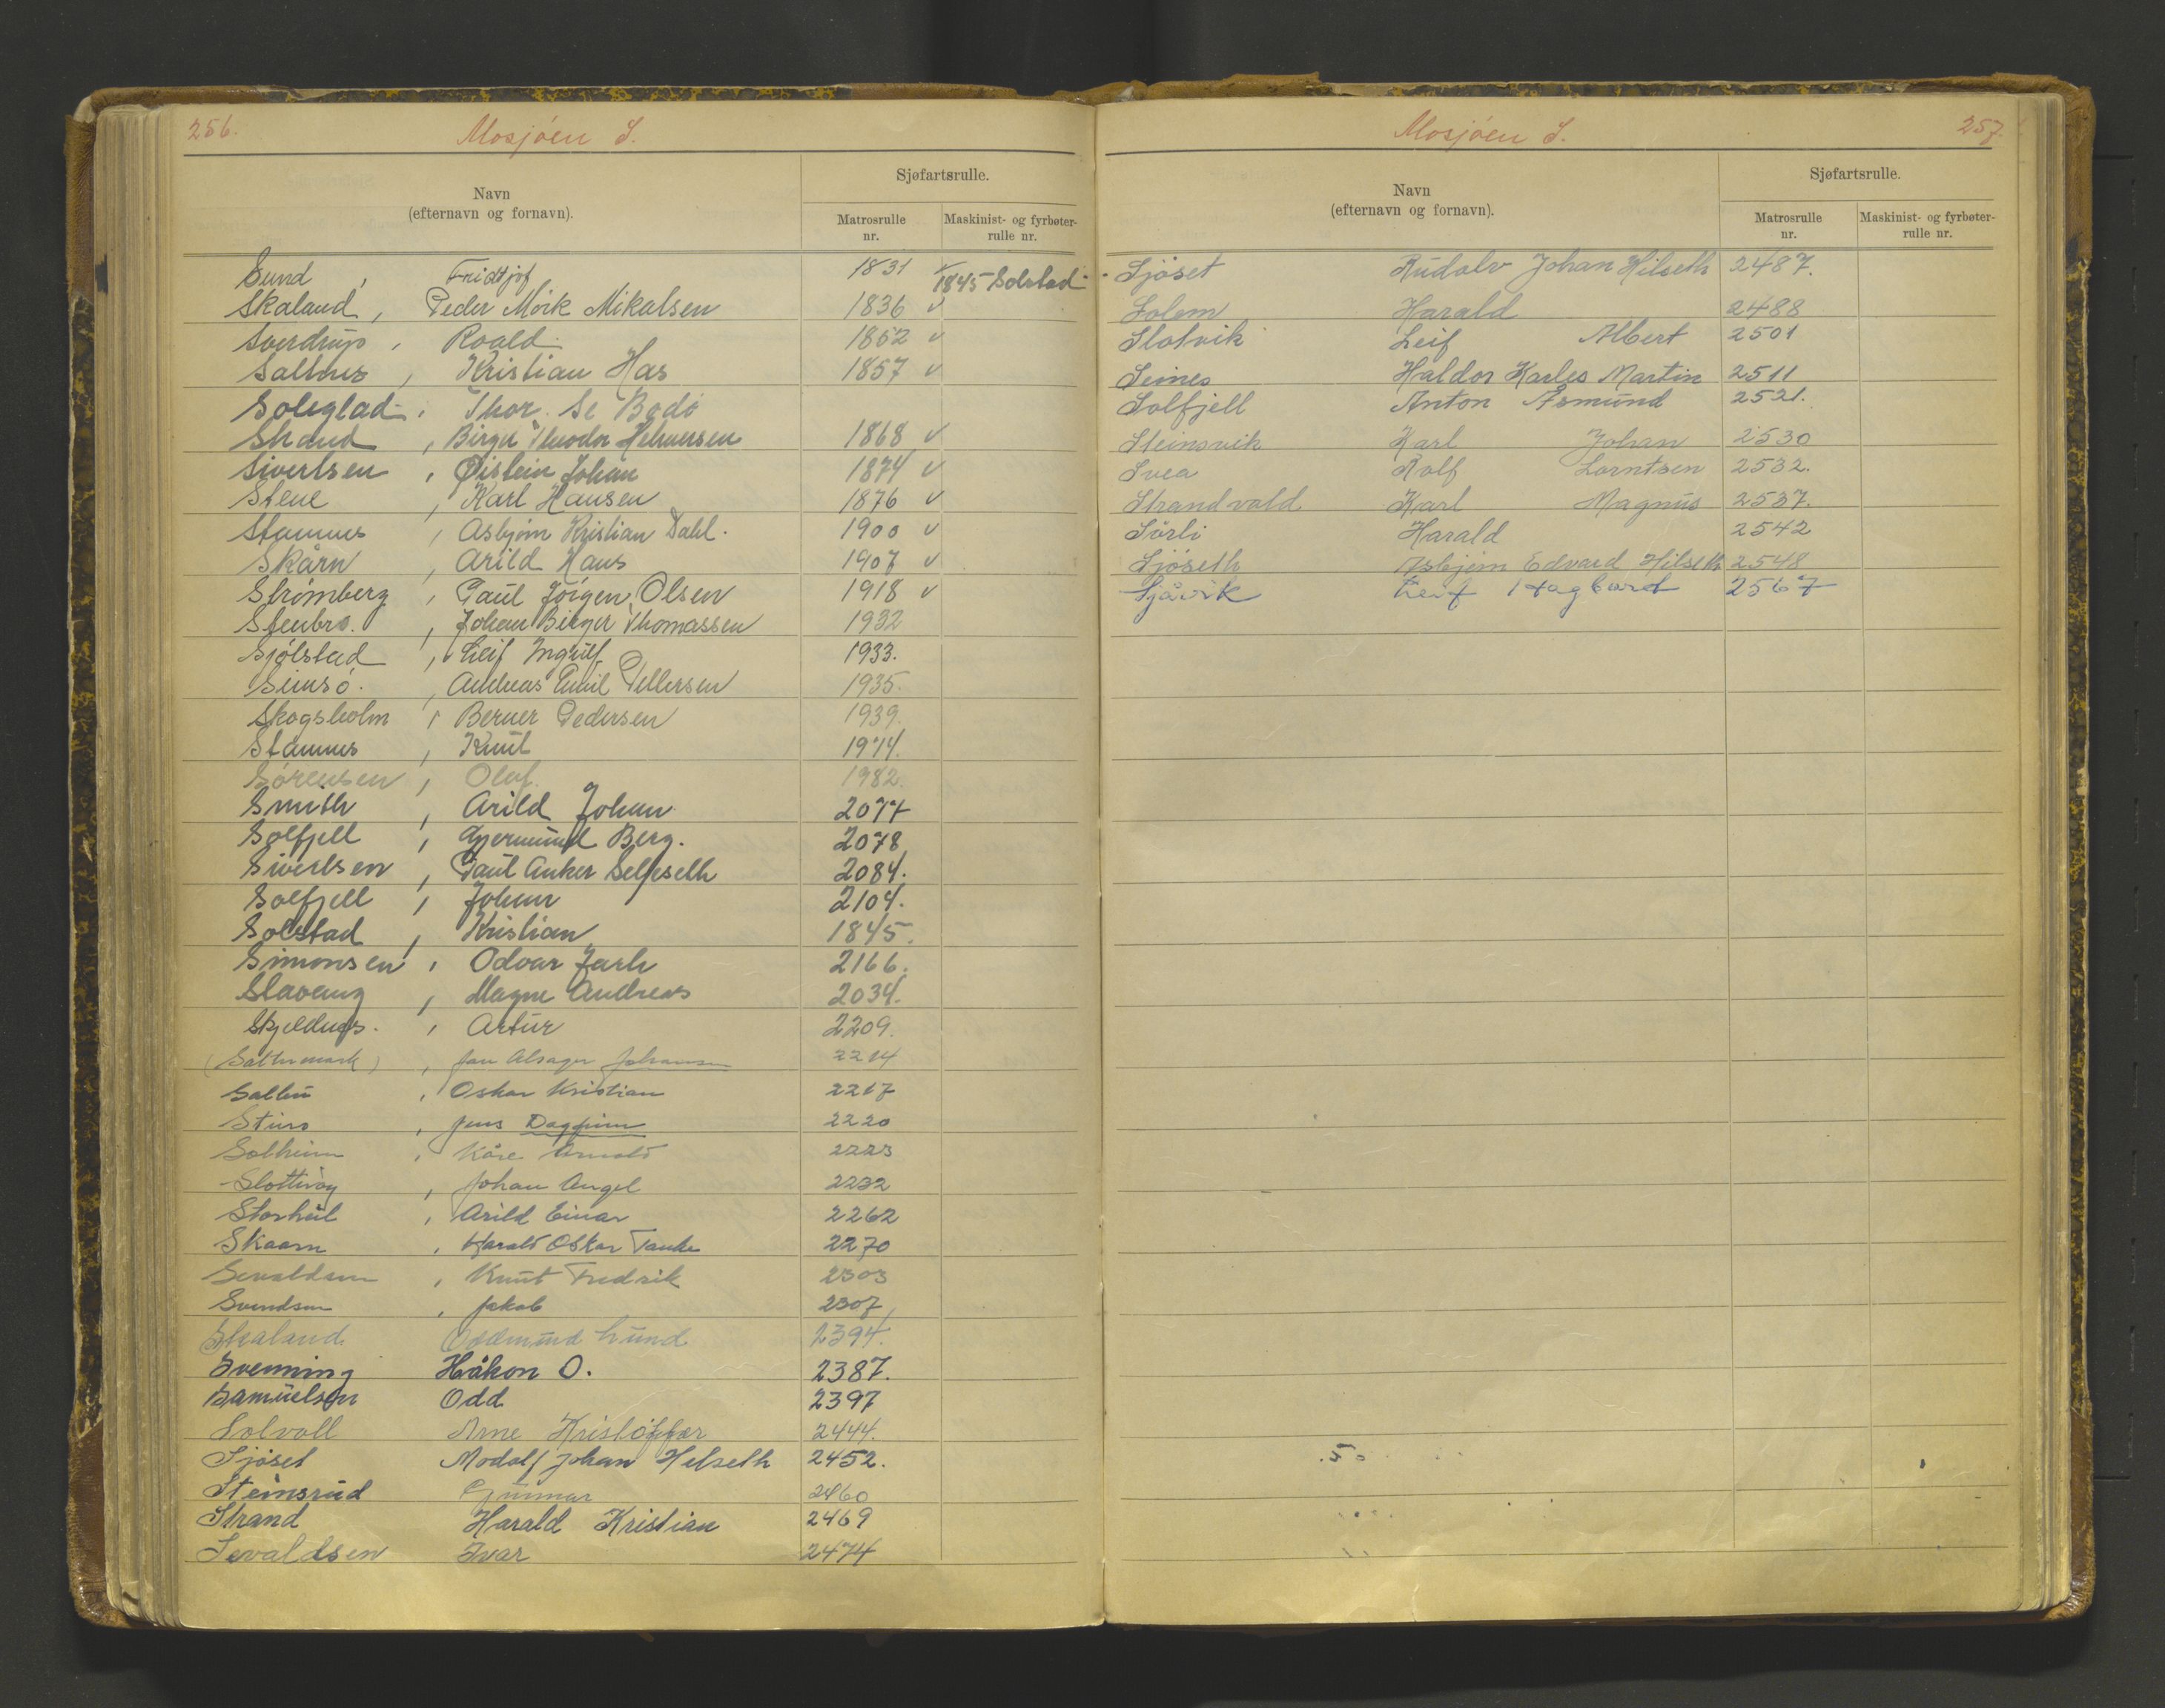 256.
Mosjöen S.
Navn
(efternavn og fornavn).
Sjøfartsrulle.
Matrosrulle nr.
Maskinist- og fyrbøter-rulle nr.
Sund, Fridtjof 1831 1845 Solstad
Skaland, Peder Mörk Mikalsen 1836 v
Sverdrup, Roald 1852 v
Saltnes, Kristian Has 1857 v
Soleglad, Thor. Se Bodö
Strand, Birger Theodor Helmersen 1868 v
Sivertsen, Øistein Johan 1874 v
Stene, Karl Hansen 1876 v
Stamnes, Asbjørn Kristian Dahl. 1900 v
Skårn, Arild Hans 1907 v
Strømberg, Paul Jörgen Olsen 1918 v
Stenbro., Johan Birger Thomassen 1932
Sjölstad, Leif Ingulf 1933.
Semsö., Andreas Emil Pettersen 1935.
Skogsholm, Berner Pedersen 1939.
Stamnes, Knut 1974.
Sörensen, Olaf. 1982.
Smith, Arild Johan 2077
Solfjell, Gjermund Berg. 2078
Sivertsen, Paul Anker Selfeseth 2084.
Solfjell, Johan 2104.
Solstad, Kristian 1845.
Simonsen, Odvar Jarh 2166.
Slavang, Magne Andreas 2034.
Skjeldnes., Artur 2209.
(Sattermark), Jan Alsager Johansen 2214
Salten, Oskar Kristian 2217
Stiro, Jens Dagfinn 2220
Solheim, Kåre Arnold 2223
Slottvåg, Johan Angel 2232
Storheil, Arild Einar 2262
Skaarn, Harald Oskar Tanke 2270
Sevaldsen, Knut Fredrik 2303
Svendsen, Jakob 2307
Skaland Oddmund Lund 2394.
Svenning Håkon O. 2387.
Samuelsen Odd 2397
Solvoll Arne Kristoffer 2444.
Sjöset Modolf Johan Hilseth 2452.
Steinsrud Gunnar 2460
Strand Harald Kristian 2469
Sevaldsen Ivar 2474
257.
Mosjöen S.
Navn
(efternavn og fornavn).
Sjøfartsrulle.
Matrosrulle nr.
Maskinist- og fyrbøter-rulle nr.
Sjöset Rudolv Johan Hilseth 2487.
Solem Harald 2488
Slotvik Leif Albert 2501
Seines Haldor Karles Martin 2511
Solfjell Anton Åsmund 2521.
Steinsvik Karl Johan 2530
Svea Rolf Lorntsen 2532.
Strandvold Karl Magnus 2537.
Sörli Harald 2542
Sjöseth Asbjörn Edvard Hilseth 2548
Sjåvik Leif Hagbart 2567